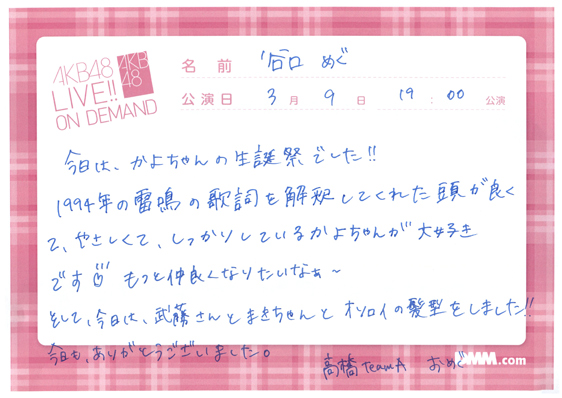 AKB48
LIVE!!
ON DEMAND
AKB
48
名 前 谷口 めぐ
公演日 3 月 9 日 19:00 公演
今日は、かよちゃんの生誕祭でした!!
1994年の雷鳴の歌詞を解釈してくれた頭が良く
て、やさしくて、しっかりしているかよちゃんが大好き
です もっと仲良くなりたいなぁ~
そして、今日は、武藤さんとまきちゃんとオソロイの髪型をしました!!
今日も、ありがとうございました。
高橋TeamA おめぐ
DMM.com